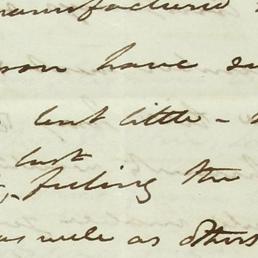 manufactured
have
but little -
last
feeling the
as well as others